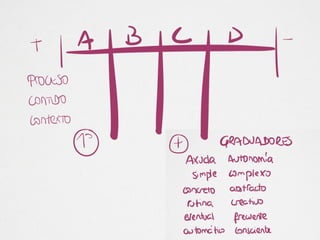 + A B C D -
PROCESO
CONTENIDO
CONTEXTO
1º + GRADUADORES
AYUDA AUTONOMÍA
simple complexo
concreto abstracto
rutina creativo
eventual frecuente
automático consciente